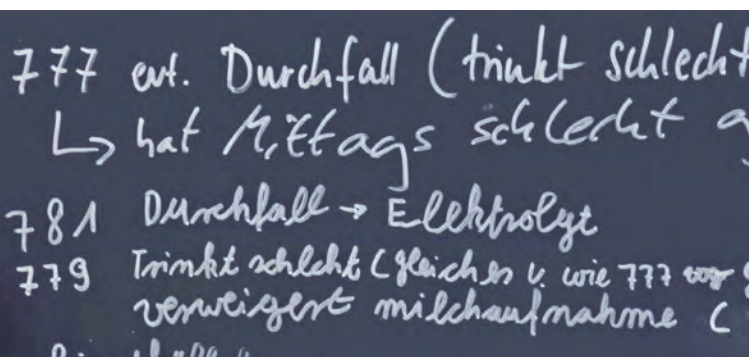 777 evt. Durchfall (trinkt schlecht
↳ hat Mittags schlecht
781 Durchfall → Elektrolyt
779 Trinkt schlecht (gleiches v. wie 777
verweigert milchaufnahme (